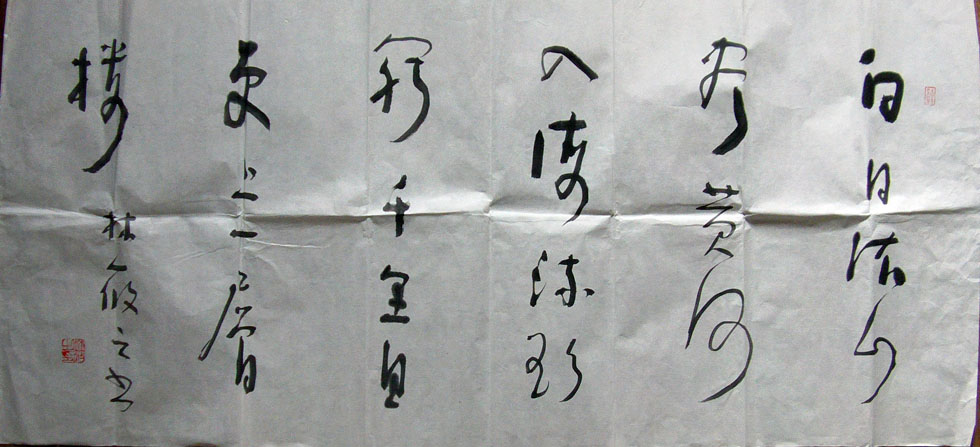 白日依山
盡黄河
入海流欲
窮千里目
更上一層
楼 林筱之书